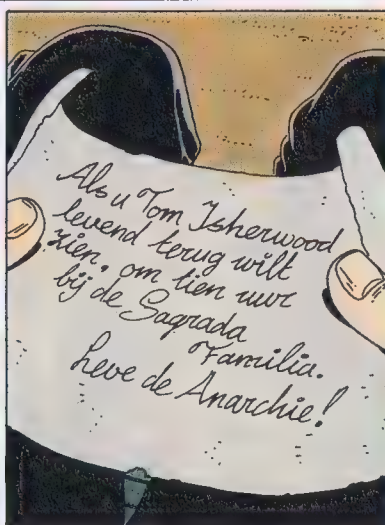 Als u Tom Isherwood
levend terug wilt
zien, om tien uur
bij de Sagrada
Familia.
Leve de Anarchie!